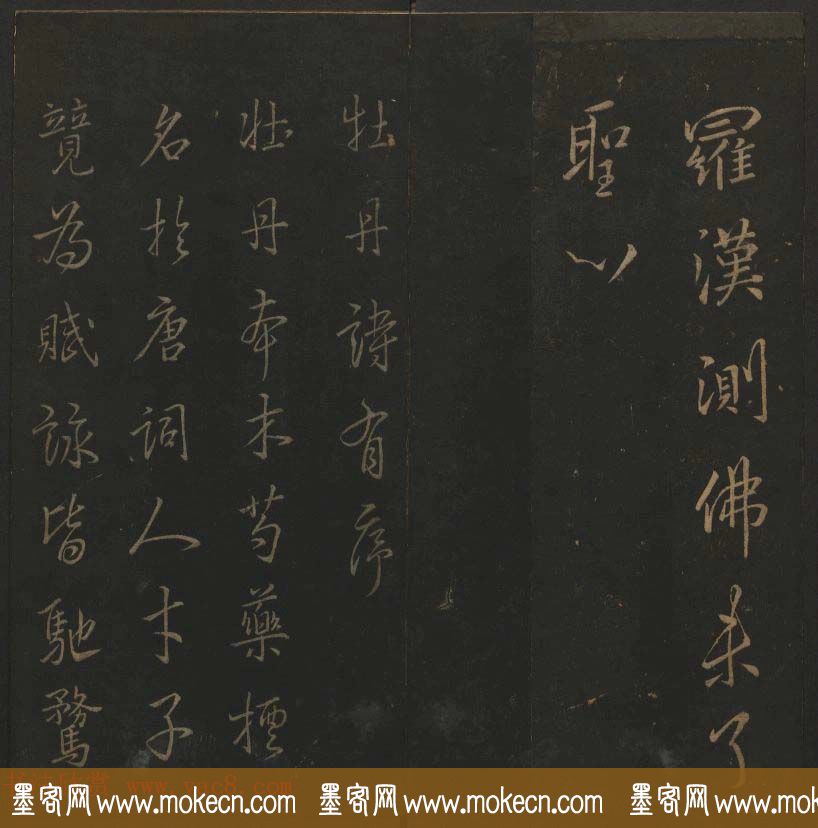 羅漢測佛未了
聖心
牡丹詩有序
牡丹本木芍藥標
名於唐詞人才子
競為賦詠皆馳騖
书法欣赏 www.yac8.com
墨客网 www.mokecn.com 墨客网 www.mokecn.com 墨客网